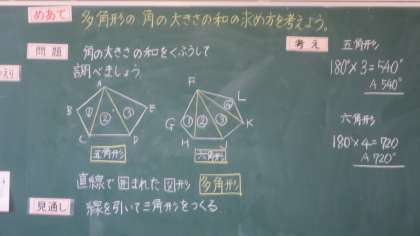 めあて 多角形の角の大きさの和の求め方を考えよう。
問題 角の大きさの和をくふうして
調べましょう
A
B ① ② ③ E
C D
五角形
F
L
G ① ② ③ ④ K
H
六角形
直線で囲まれた図形 多角形
見通し 線を引いて三角形をつくる
考え 五角形
180°×3=540°
A 540°
六角形
180°×4=720
A 720°